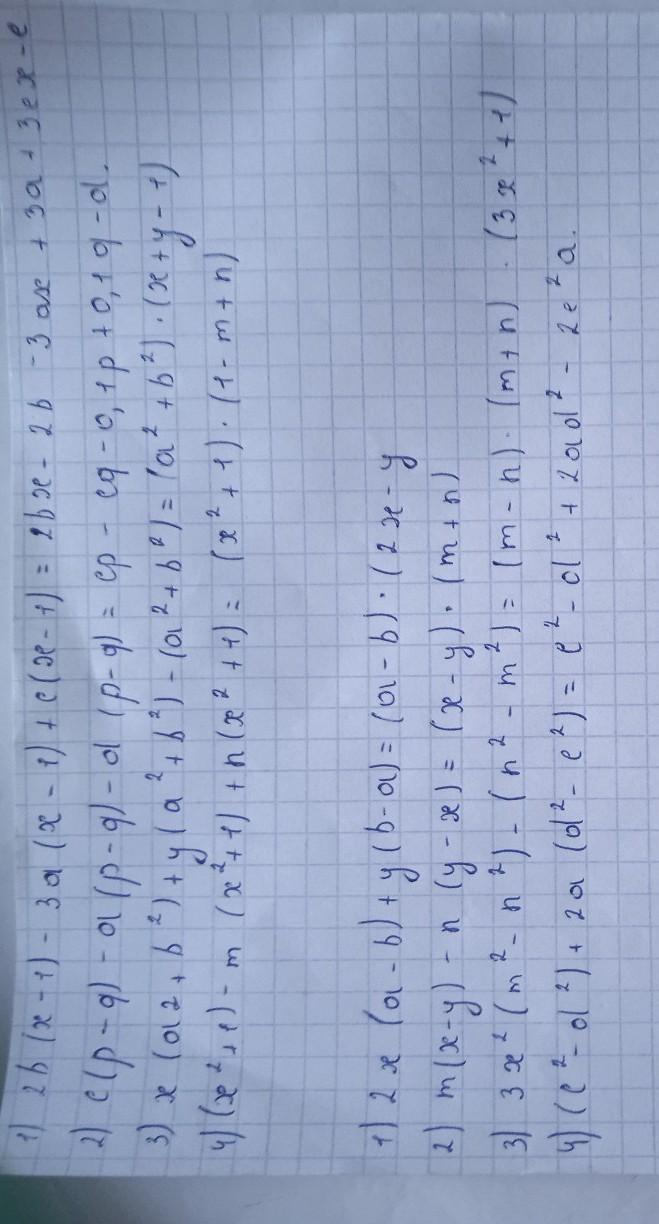 1) 2b(x-1)-3a(x-1)+c(x-1)=2bx-2b-3ax+3a+3cx-c
2) c(p-q)-a(p-q)-d(p-q)=cp-cq-0,1p+0,1q-d.
3) x(a2+b²)+y(a²+b²)-(a²+b²)=(a²+b²)·(x+y-1)
4) (x²+1)-m(x²+1)+n(x²+1)=(x²+1)·(1-m+n)
1) 2x(a-b)+y(b-a)=(a-b)·(2x-y
2) m(x-y)-n(y-x)=(x-y)·(m+n)
3) 3x²(m²-n²)-(n²-m²)=(m-n)·(m+n)·(3x²+1)
4) (c²-d²)+2a(d²-c²)=c²-d²+2ad²-2c²a.